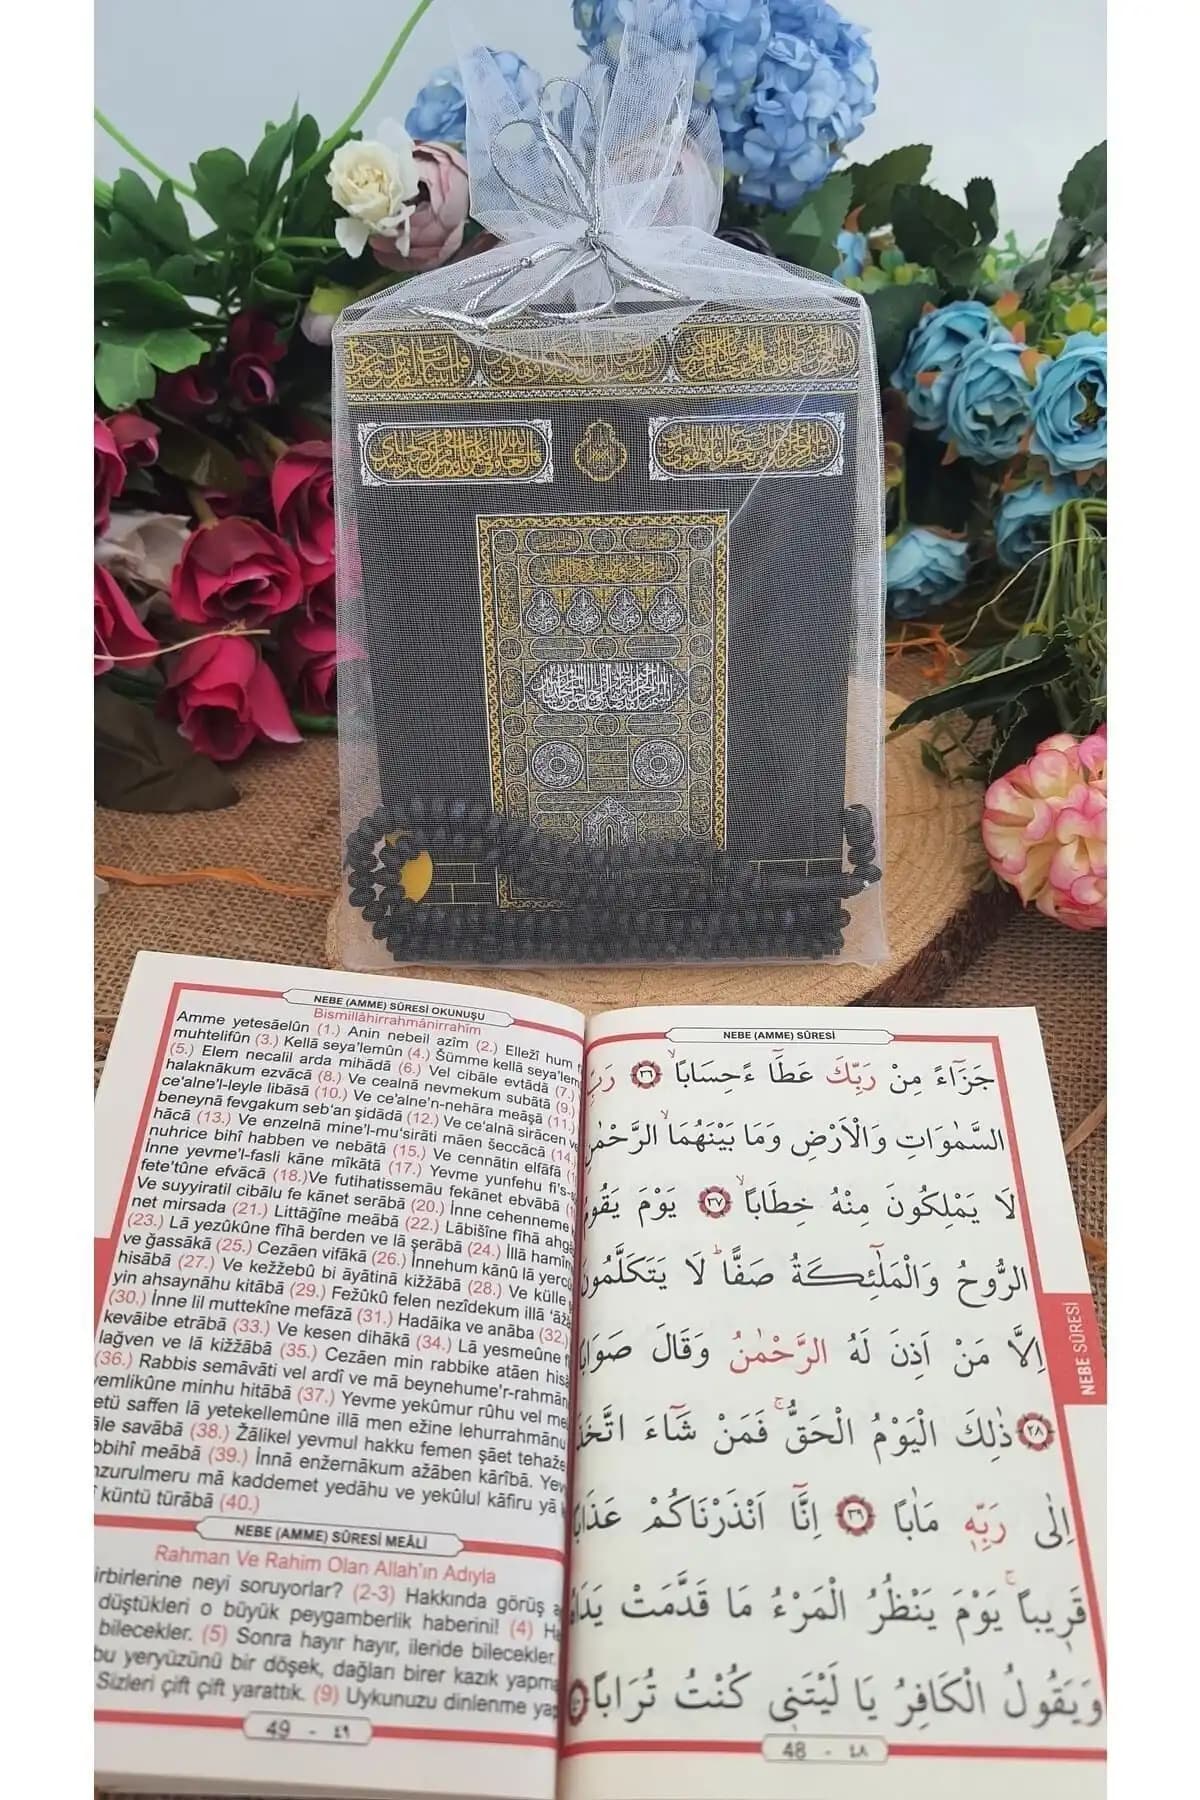 NEBE (AMME) SÛRESİ OKUNUŞU
Bismillâhirrahmânirrahîm
Amme yetesāelûn (1.) Anin nebeil azîm (2.) Elležî hum
muhtelifûn (3.) Kellā seya'lemûn (4.) Šümme kellā seya'lem
(5.) Elem necalil arda mihādā (6.) Vel cibāle evtādā (7.)
halaknākum ezvācā (8.) Ve cealnā nevmekum subātā (9.)
ce'alne'l-leyle libāsā (10.) Ve ce'alne'n-nehāra meāşā (11.)
beneynā fevgakum seb'an şidādā (12.) Ve ce'alnā sirācen
hācā (13.) Ve enzelnā mine'l-mu'sirāti māen šeccācā (14.
nuhrice bihî habben ve nebātā (15.) Ve cennātin elfāfā
İnne yevme'l-fasli kāne mîkātā (17.) Yevme yunfehu fi's-
fete'tûne efvācā (18.)Ve futihatissemāu fekānet ebvābā
Ve suyyiratil cibālu fe kānet serābā (20.) İnne cehenneme
net mirsada (21.) Littāğîne meābā (22.) Lābišîne fîhā ahg
(23.) Lā yezûkûne fîhā berden ve lā şerābā (24.) İllā hamîn
ve ğassākā (25.) Cezāen vifākā (26.) İnnehum kānû lā yercû
hisābā (27.) Ve kežžebû bi āyātinā kižžābā (28.) Ve külle
yin ahsaynāhu kitābā (29.) Fežûkû felen nezîdekum illā 'āžā
(30.) İnne lil muttekîne mefāzā (31.) Hadāika ve anāba (32.)
kevāibe etrābā (33.) Ve kesen dihākā (34.) Lā yesmeûne
lağven ve lā kižžābā (35.) Cezāen min rabbike atāen hisā
(36.) Rabbis semāvāti vel ardî ve mā beynehume'r-rahmān
yemlikûne minhu hitābā (37.) Yevme yekûmur rûhu vel me
etü saffen lā yetekellemûne illā men ežine lehurrahmānu
āle savābā (38.) Žālikel yevmul hakku femen şāet tehaže
bbihî meābā (39.) İnnā enžernākum ažāben kārîbā. Yev
nzurulmeru mā kaddemet yedāhu ve yekûlul kāfiru yā
î küntü türābā (40.)
NEBE (AMME) SÛRESİ MEÂLİ
Rahman Ve Rahim Olan Allah'ın Adıyla
irbirlerine neyi soruyorlar? (2-3) Hakkında görüş
düştükleri o büyük peygamberlik haberini! (4) Ha
bilecekler. (5) Sonra hayır hayır, ileride bilecekler.
bu yeryüzünü bir döşek, dağları birer kazık yapma
Sizleri çift çift yarattık. (9) Uykunuzu dinlenme yap
49 - ٤٩
NEBE (AMME) SÛRESİ
جَزَٓاءً مِنْ رَبِّكَ عَطَٓاءً حِسَابًاۙ ﴿٣٦﴾ رَبِّ
السَّمٰوَاتِ وَالْاَرْضِ وَمَا بَيْنَهُمَا الرَّحْمٰنِ
لَا يَمْلِكُونَ مِنْهُ خِطَابًاۙ ﴿٣٧﴾ يَوْمَ يَقُومُ
الرُّوحُ وَالْمَلٰٓئِكَةُ صَفًّاۜ لَا يَتَكَلَّمُونَ
اِلَّا مَنْ اَذِنَ لَهُ الرَّحْمٰنُ وَقَالَ صَوَابًا
﴿٣٨﴾ ذٰلِكَ الْيَوْمُ الْحَقُّۚ فَمَنْ شَٓاءَ اتَّخَذَ
اِلٰى رَبِّه۪ مَاٰبًا ﴿٣٩﴾ اِنَّٓا اَنْذَرْنَاكُمْ عَذَابًا
قَر۪يبًاۚ يَوْمَ يَنْظُرُ الْمَرْءُ مَا قَدَّمَتْ يَدَاهُ
وَيَقُولُ الْكَافِرُ يَا لَيْتَن۪ي كُنْتُ تُرَابًا ﴿٤٠﴾
NEBE SÛRESİ
48 - ٤٨